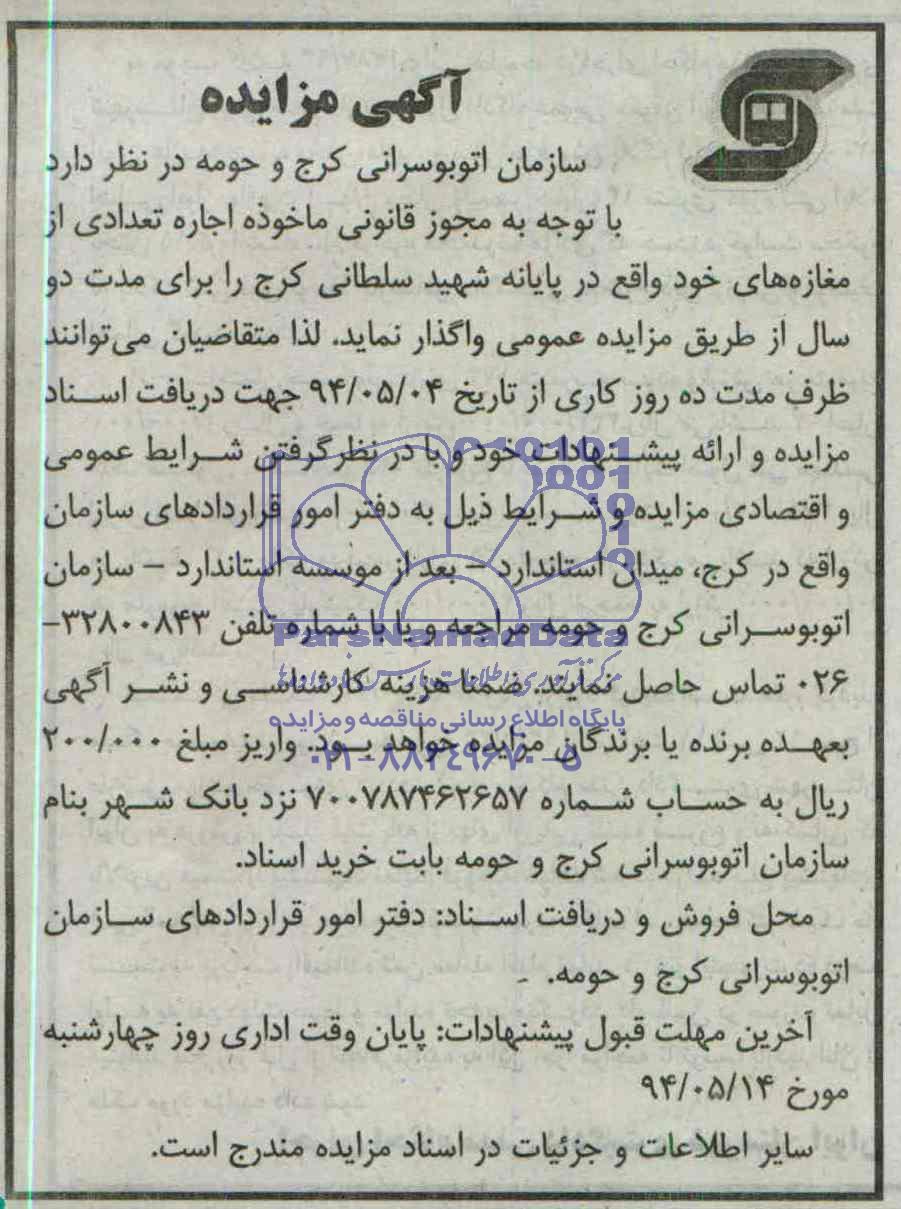 آگهی مزایده
سازمان اتوبوسرانی کرج و حومه در نظر دارد
با توجه به مجوز قانونی ماخوذه اجاره تعدادی از
مغازه‌های خود واقع در پایانه شهید سلطانی کرج را برای مدت دو
سال از طریق مزایده عمومی واگذار نماید. لذا متقاضیان می‌توانند
ظرف مدت ده روز کاری از تاریخ ۹۴/۰۵/۰۴ جهت دریافت اسناد
مزایده و ارائه پیشنهادات خود و با در نظر گرفتن شرایط عمومی
و اقتصادی مزایده و شرایط ذیل به دفتر امور قراردادهای سازمان
واقع در کرج، میدان استاندارد – بعد از موسسه استاندارد – سازمان
اتوبوسرانی کرج و حومه مراجعه و یا با شماره تلفن ۳۲۸۰۰۸۴۳-
ParsNamadData
۰۲۶ تماس حاصل نمایند. ضمنا هزینه کارشناسی و نشر آگهی
پایگاه اطلاع رسانی مناقصه و مزایده
بعهده برنده یا برندگان مزایده خواهد بود. واریز مبلغ ۲۰۰/۰۰۰
۰۲۱-۸۸۳۴۹۶۷۰-۵
ریال به حساب شماره ۷۰۰۷۸۷۴۶۲۶۵۷ نزد بانک شهر بنام
سازمان اتوبوسرانی کرج و حومه بابت خرید اسناد.
محل فروش و دریافت اسناد: دفتر امور قراردادهای سازمان
اتوبوسرانی کرج و حومه.
آخرین مهلت قبول پیشنهادات: پایان وقت اداری روز چهارشنبه
مورخ ۹۴/۰۵/۱۴
سایر اطلاعات و جزئیات در اسناد مزایده مندرج است.